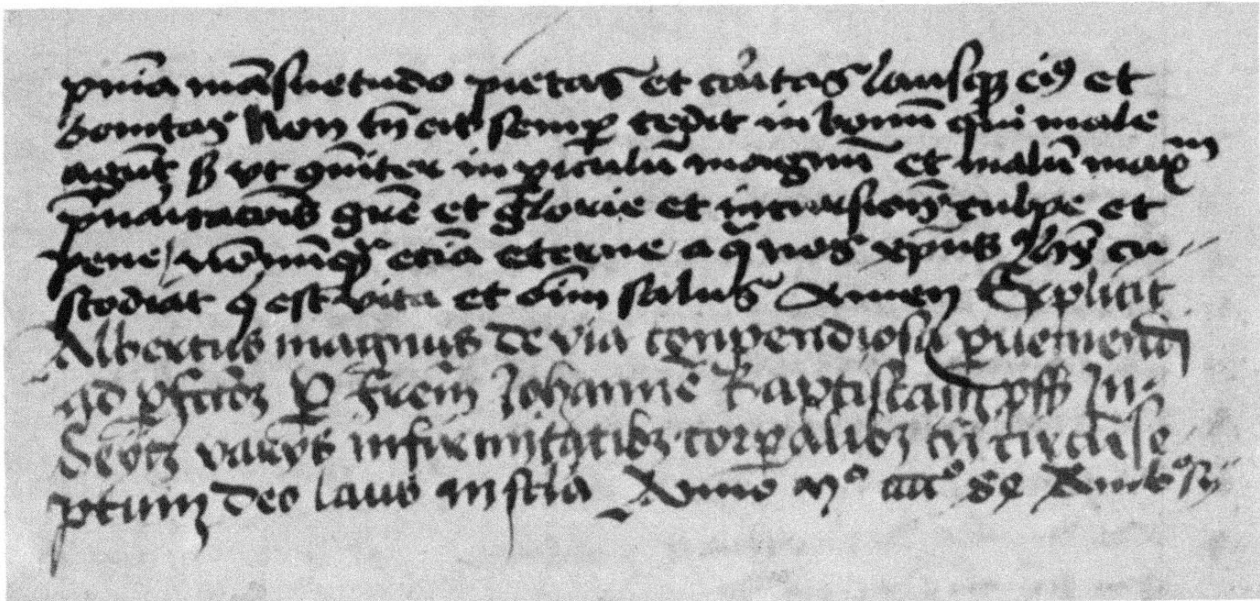 pnīa māsuetudo pietas et caritas lausqꝫ eiꝰ et
bonitas Non tn̄ eis semꝑ cedit in bonū qui male
agūt sꝫ vt ꝯmūiter in ꝑiculū magnū et malū maxm
pͥuacōis grē et glorie et incursionē culpe et
pene nōnūqꝫ eciā eterne a qͣ nos xp̄us cu
stodiat qͥ est vita et oīm salus Amen Explicit
Albertus magnus de via conpendiosa ꝑueniendi
ad ꝑfectōꝫ ꝑ frem̄ Johannē Baptistam pff In
varijs infirmitatibꝫ corꝑalibꝫ tūc circūse
ptum deo laus in scl̄a Anno mº